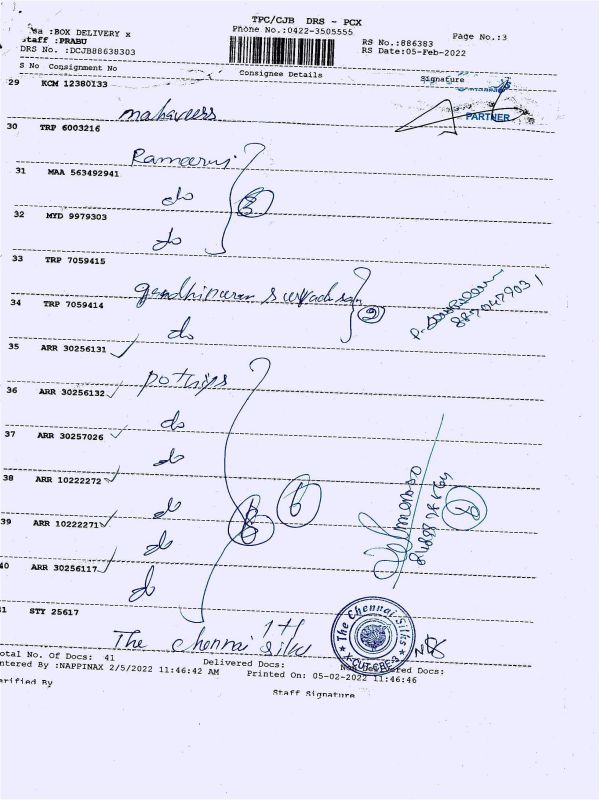 TPC/CJB DRS - PCX
sa :BOX DELIVERY x
Phone No.:0422-3505555
Page No.:3
Staff :PRABU
RS No.:886383
DRS No. :DCJB88638303
RS Date:05-Feb-2022
S No Consignment No Consignee Details Signature
29 KCM 12380133
mahaveers
PARTNER
30 TRP 6003216
31 MAA 563492941
do
32 MYD 9979303
do
33 TRP 7059415
34 TRP 7059414
do
35 ARR 30256131
pothys
36 ARR 30256132
do
37 ARR 30257026
do
38 ARR 10222272
do
39 ARR 10222271
do
40 ARR 30256117
do
41 STY 25617
The Chennai Silks
The Chennai Silks
X-CUT-CBE-9
otal No. of Docs: 41 Delivered Docs: Docs:
ntered By :NAPPINAX 2/5/2022 11:46:42 AM Printed On: 05-02-2022 11:46:46
erified By
Staff Signature